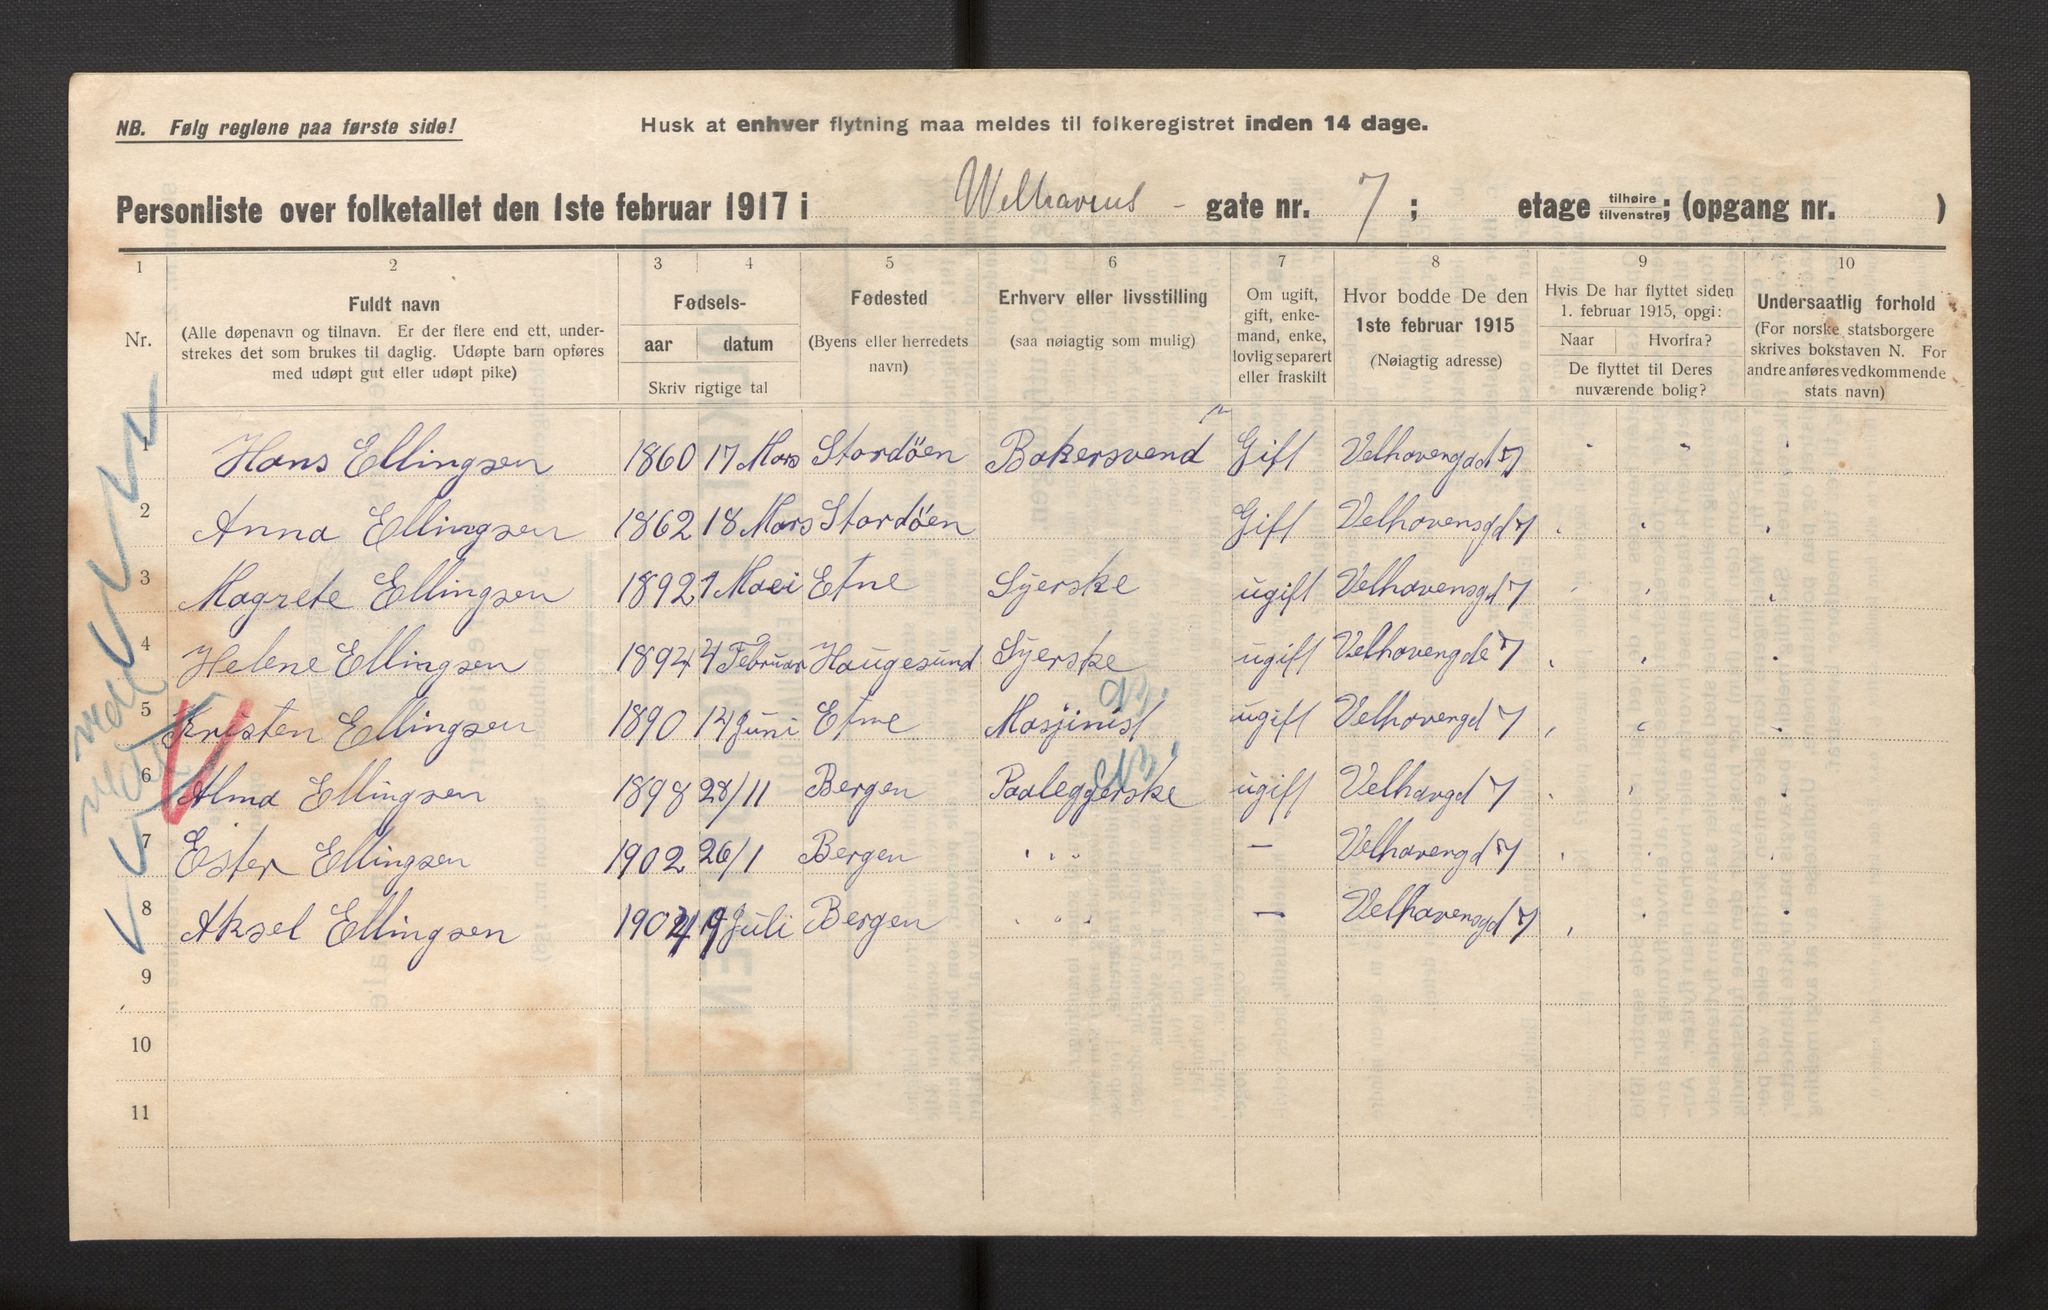 NB. Følg reglene paa første side!
Husk at enhver flytning maa meldes til folkeregistret inden 14 dage.
Personliste over folketallet den 1ste februar 1917 i Welhavens - gate nr. 7 ; etage tilhøire tilvenstre; (opgang nr. )
1 2 3 4 5 6 7 8 9 10
Nr.
Fuldt navn
(Alle døpenavn og tilnavn. Er der flere end ett, under-
strekes det som brukes til daglig. Udøpte barn opføres
med udøpt gut eller udøpt pike)
Fødsels-
aar datum
Skriv rigtige tal
Fødested
(Byens eller herredets
navn)
Erhverv eller livsstilling
(saa nøiagtig som mulig)
Om ugift,
gift, enke-
mand, enke,
lovlig separert
eller fraskilt
Hvor bodde De den
1ste februar 1915
(Nøiagtig adresse)
Hvis De har flyttet siden
1. februar 1915, opgi:
Naar Hvorfra?
De flyttet til Deres
nuværende bolig?
Undersaatlig forhold
(For norske statsborgere
skrives bokstaven N. For
andre anføres vedkommende
stats navn)
1 Hans Ellingsen 1860 17 Mars Stordöen Bakersvend Gift Velhavengd 7 " " "
2 Anna Ellingsen 1862 18 Mars Stordöen Gift Velhavensgd 7
3 Magrete Ellingsen 1892 1 Maei Etne Syerske ugift Velhavensgd 7
4 Helene Ellingsen 1894 4 Februar Haugesund Syerske ugift Velhavengde 7
5 Kristen Ellingsen 1890 14 Juni Etne Masjinist ugift Velhavengd 7
6 Alma Ellingsen 1898 28/11 Bergen Paaleggerske ugift Velhavgd 7
7 Ester Ellingsen 1902 26/1 Bergen " " " — Velhavengd 7
8 Aksel Ellingsen 1904 19 Juli Bergen " " " — Velhavensgd 7
9
10
11